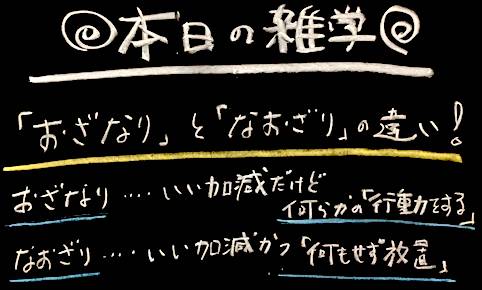 本日の雑学
「おざなり」と「なおざり」の違い!
おざなり‥‥いい加減だけど何らかの「行動をする」
なおざり‥‥いい加減かつ「何もせず放置」